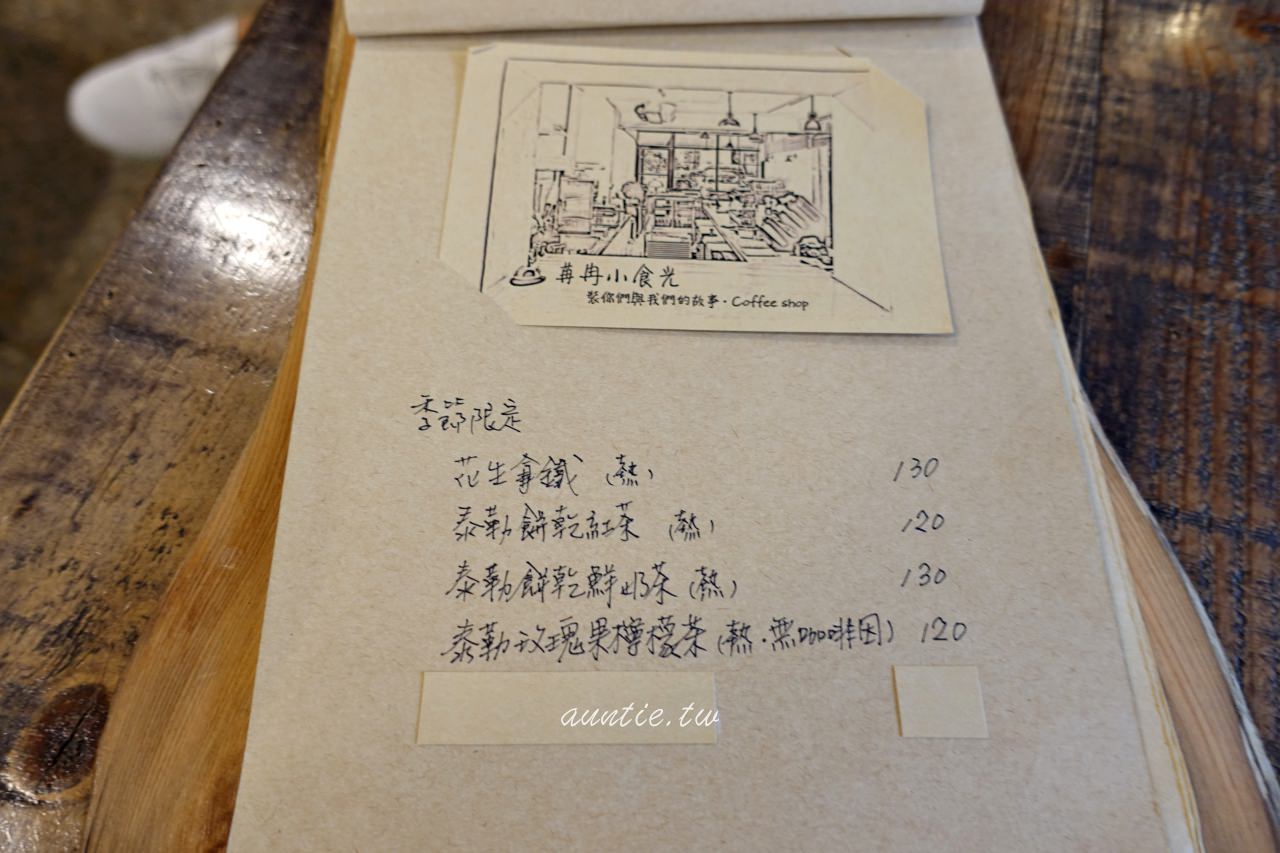 苒冉小食光
裝你們與我們的故事·Coffee shop
季節限定
花生拿鐵 (熱) 130
泰勒餅乾紅茶 (熱) 120
泰勒餅乾鮮奶茶 (熱) 130
泰勒玫瑰果檸檬茶 (熱·無咖啡因) 120
auntie.tw